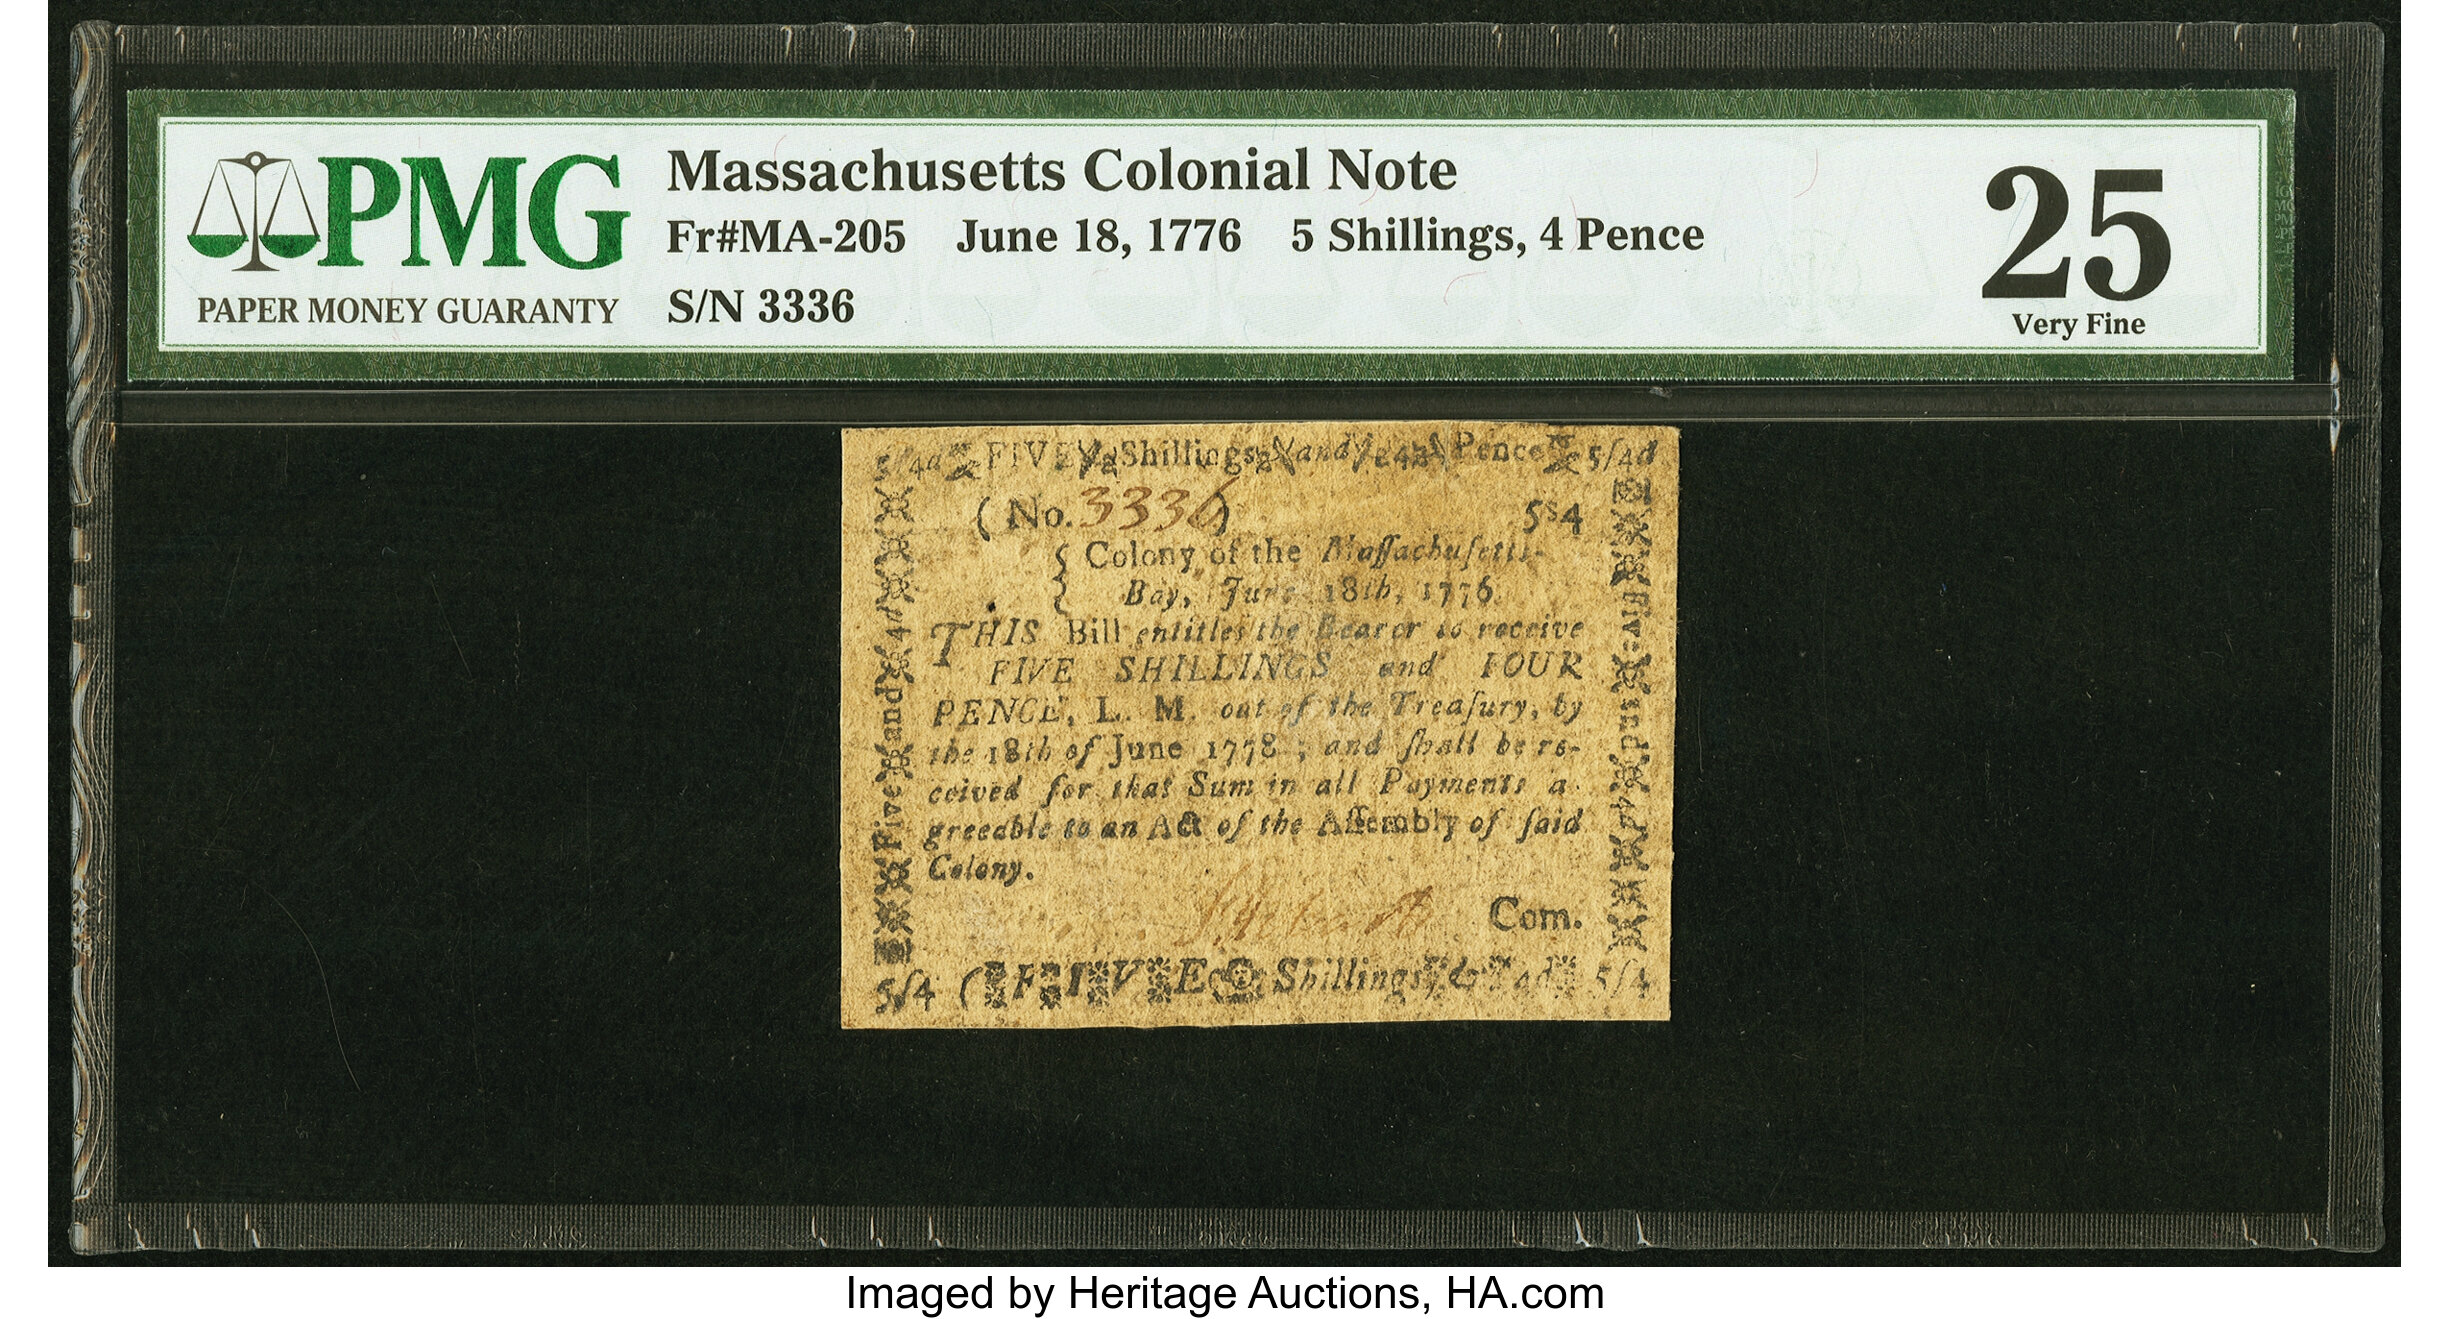 PMG
PAPER MONEY GUARANTY
Massachusetts Colonial Note
Fr#MA-205 June 18, 1776 5 Shillings, 4 Pence
S/N 3336
25
Very Fine
5/4d FIVE Shillings and 4 Pence 5/4d
(No. 3336)
5s4
Colony of the Maſſachuſetts-
Bay, June 18th, 1776.
THIS Bill entitles the Bearer to receive
FIVE SHILLINGS and FOUR
PENCE, L. M. out of the Treaſury, by
the 18th of June 1778; and ſhall be re-
ceived for that Sum in all Payments a-
greeable to an Act of the Aſſembly of ſaid
Colony.
Com.
5/4 (FIVE Shillings, & 4d 5/4
Five and 4d
Five and 4d
Imaged by Heritage Auctions, HA.com